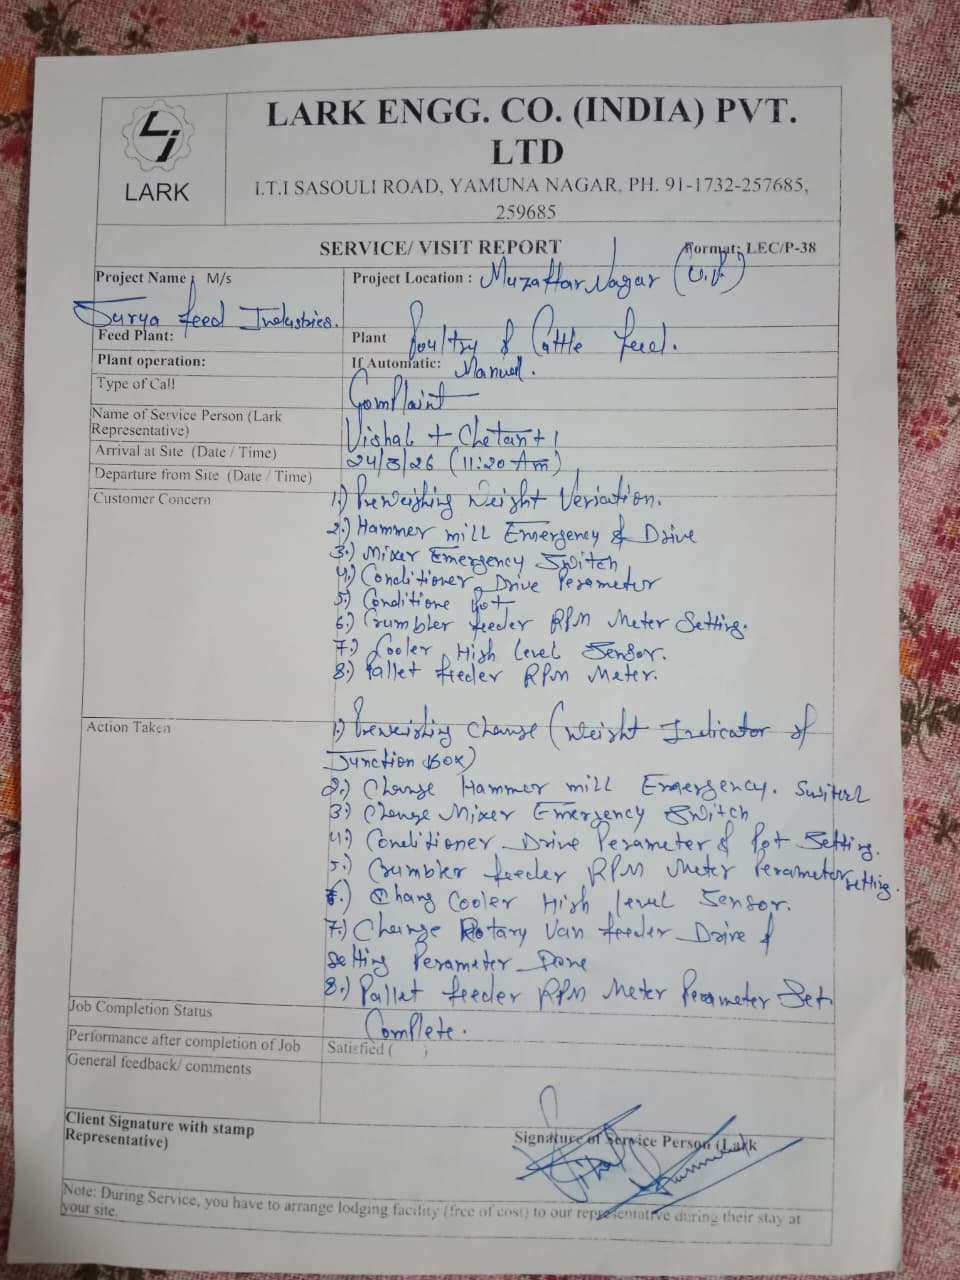 LARK
LARK ENGG. CO. (INDIA) PVT.
LTD
I.T.I SASOULI ROAD, YAMUNA NAGAR, PH. 91-1732-257685,
259685
SERVICE/ VISIT REPORT Format: LEC/P-38
Project Name : M/s
Surya Feed Industries.
Project Location : Muzaffar Nagar (U.P)
Feed Plant:
Plant Poultry & Cattle Feed.
Plant operation:
If Automatic: Manual.
Type of Call Complaint
Name of Service Person (Lark
Representative) Vishal + Chetan + 1
Arrival at Site (Date / Time) 24/3/26 (11:20 Am)
Departure from Site (Date / Time)
Customer Concern
1.) Preweighing Weight Veriation.
2.) Hammer mill Emergency & Drive
3.) Mixer Emergency Switch
4.) Conditioner Drive Perameter
5.) Conditione Pot
6.) Crumbler feeder RPM Meter Setting.
7.) Cooler High level Sensor.
8.) Pallet feeder RPM Meter.
Action Taken
1.) Preweighing Change (Weight Indicator &
Junction Box)
2.) Change Hammer mill Emergency.
3.) Change Mixer Emergency Switch
4.) Conditioner Drive Perameter & Pot Setting.
5.) Crumbler feeder RPM Meter Perameter setting.
6.) Chang Cooler High level Sensor.
7.) Change Rotary Van feeder Drive &
setting Perameter Done
8.) Pallet feeder RPM Meter Perameter Set.
Job Completion Status Complete.
Performance after completion of Job Satisfied ( )
General feedback/ comments
Client Signature with stamp
Representative)
Signature of Service Person (Lark
Note: During Service, you have to arrange lodging facility (free of cost) to our representative during their stay at
your site.